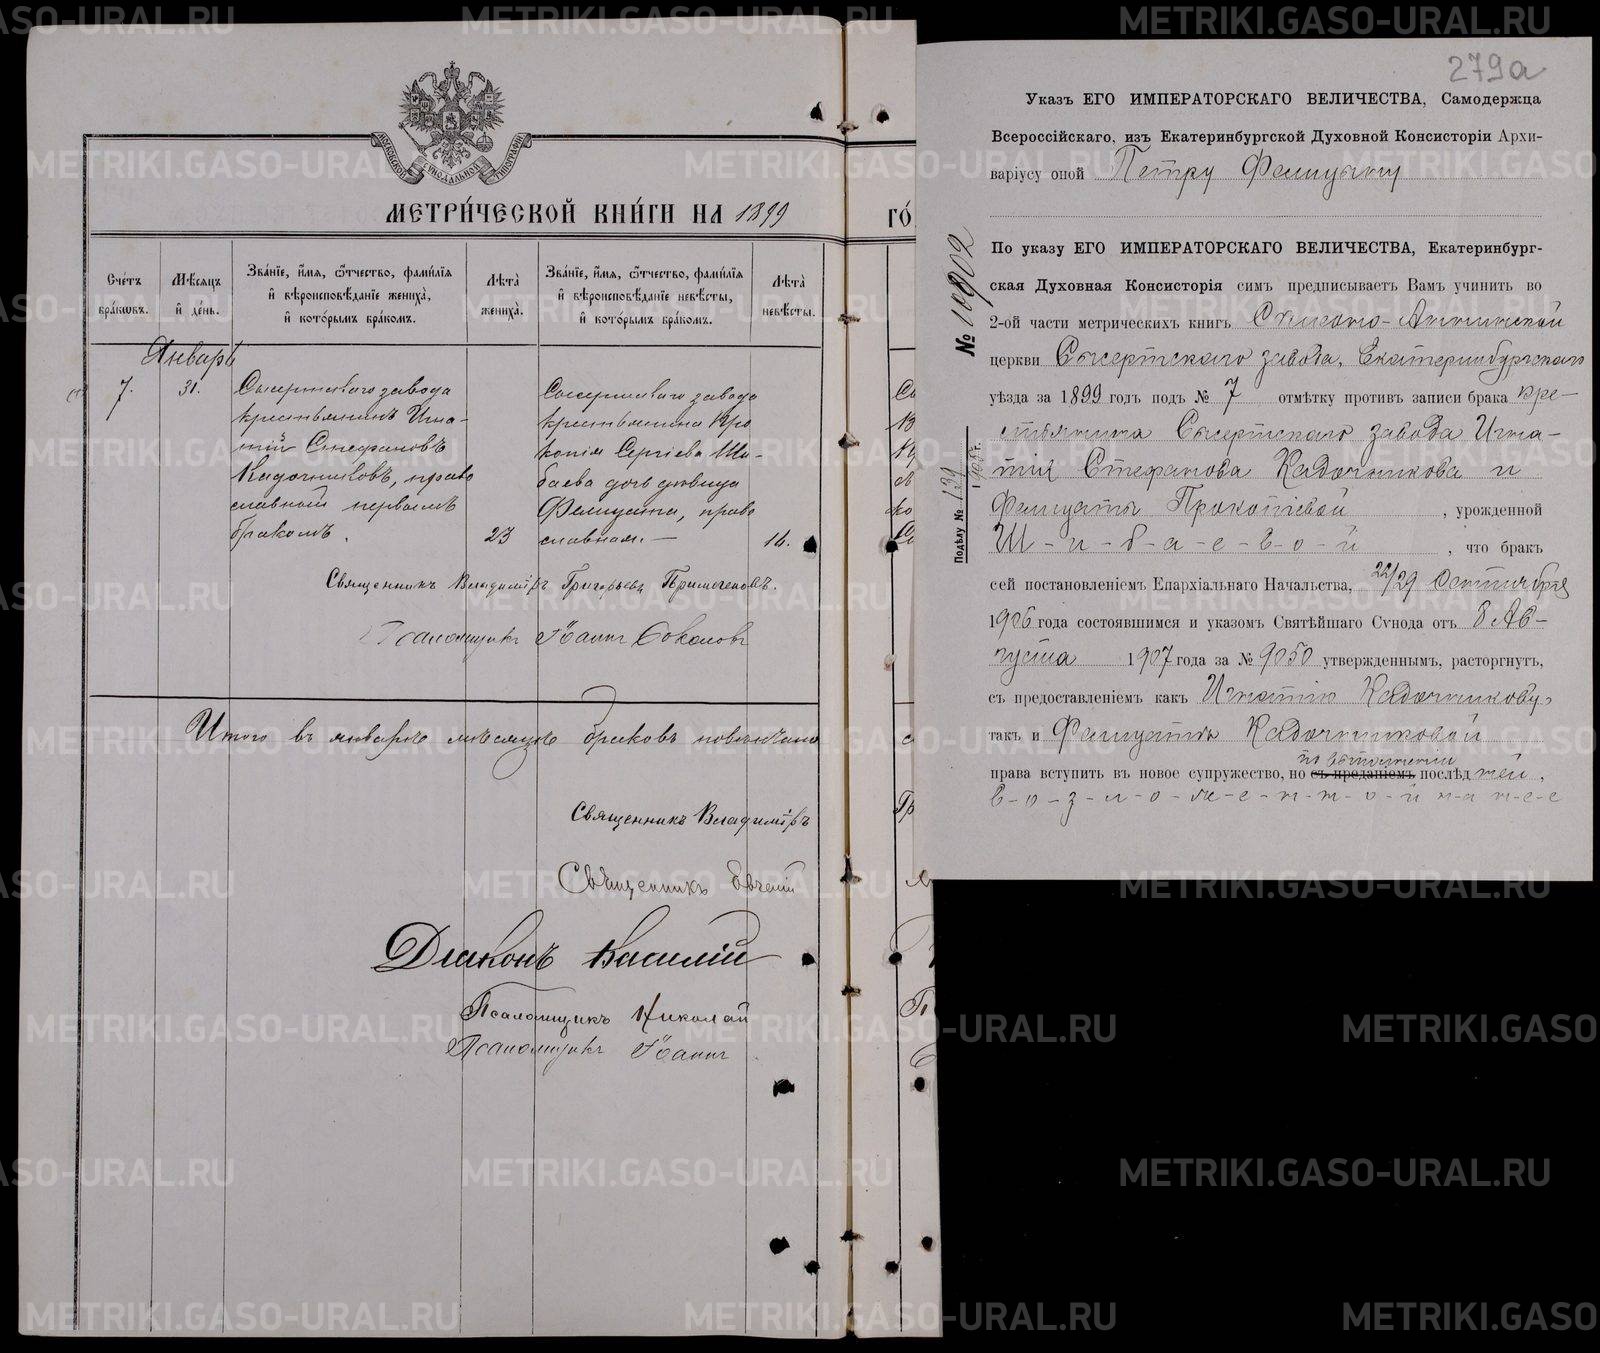 МОСКОВСКОЙ СѴНОДАЛЬНОЙ ТИПОГРАФІИ
МЕТРИ́ЧЕСКОЙ КНИ́ГИ НА 1899
ГО́
Сче́тъ бра́ковъ.
Мѣ́сяцъ и҆ де́нь.
Зва́нїе, и҆́мя, ѻ҆́тчество, фами́лїя и҆ вѣроисповѣ́данїе жениха̀, и҆ кото́рымъ бра́комъ.
Лѣ̑та жениха̀.
Зва́нїе, и҆́мя, ѻ҆́тчество, фами́лїя и҆ вѣроисповѣ́данїе невѣ́сты, и҆ кото́рымъ бра́комъ.
Лѣ̑та невѣ́сты.
Январь
7.
31.
Сысертскаго завода
крестьянинъ Игна-
тій Стефановъ
Кадочниковъ, право
славный первымъ
бракомъ.
23
Сысертскаго завода
крестьянина Про
копія Сергіева Ши-
баева дочь дѣвица
Фелицата, право
славная.—
16.
Священникъ Владиміръ Григорьевъ
Псаломщикъ Іоаннъ Соколовъ
Итого въ январѣ мѣсяцѣ браковъ повѣнчано
Священникъ Владиміръ
Священникъ Евгеній
Діаконъ Василій
Псаломщикъ Николай
Псаломщикъ Іоаннъ
279а
Указъ ЕГО ИМПЕРАТОРСКАГО ВЕЛИЧЕСТВА, Самодержца
Всероссійскаго, изъ Екатеринбургской Духовной Консисторіи Архи-
варіусу оной Петру Феницыну
По указу ЕГО ИМПЕРАТОРСКАГО ВЕЛИЧЕСТВА, Екатеринбург-
ская Духовная Консисторія симъ предписываетъ Вамъ учинить во
2-ой части метрическихъ книгъ Симеоно-Аннинской
церкви Сысертскаго завода, Екатеринбургскаго
уѣзда за 1899 годъ подъ № 7 отмѣтку противъ записи брака кре-
стьянина Сысертскаго завода Игна-
тія Стефанова Кадочникова и
Фелицаты Прокопіевой, урожденной
Ш-и-б-а-е-в-о-й, что бракъ
сей постановленіемъ Епархіальнаго Начальства, 22/29 Октября
1906 года состоявшимся и указомъ Святѣйшаго Сѵнода отъ 8 Ав-
густа 1907 года за № 9050 утвержденнымъ, расторгнутъ,
съ предоставленіемъ какъ Игнатію Кадочникову,
такъ и Фелицатѣ Кадочниковой
права вступить въ новое супружество, но съ преданіемъ по выполненіи послѣд ней,
в-о-з-л-о-ж-е-н-н-о-й н-а н-е-е
№ 10902
По дѣлу № 139
1905 г.
METRIKI.GASO-URAL.RU